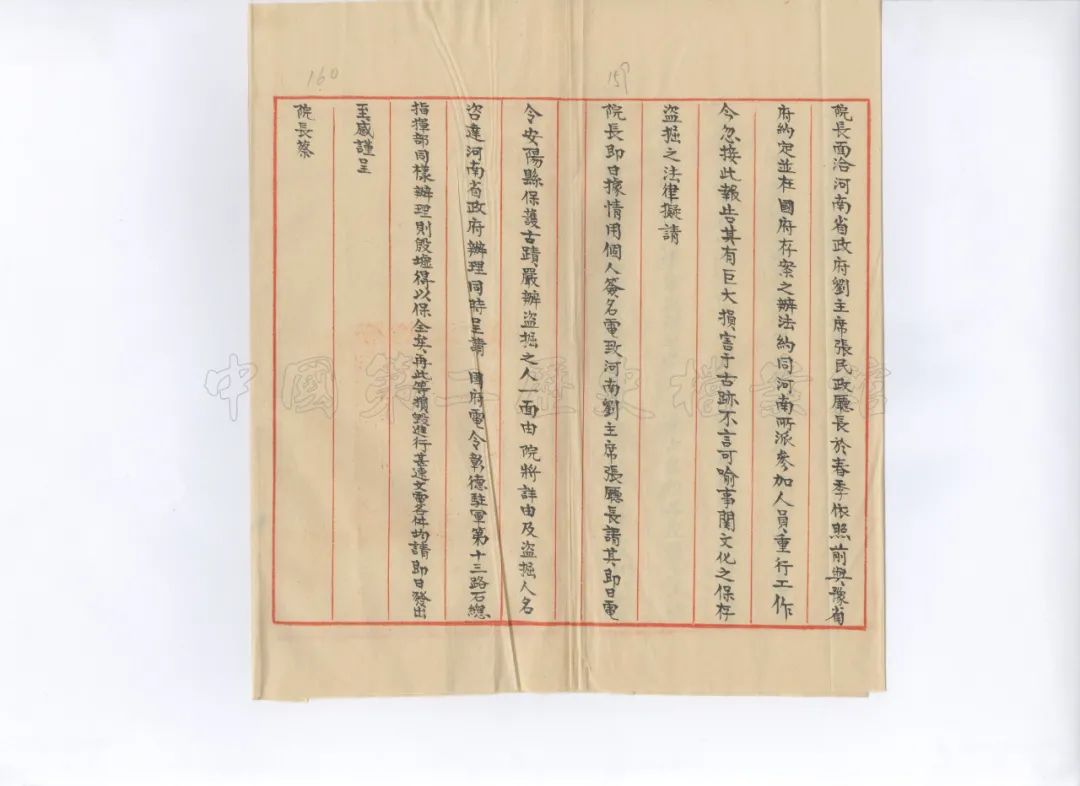 159
院長面洽河南省政府劉主席張民政廳長於春季依照前與豫省
府約定並在 國府存案之辦法約同河南所派參加人員重行工作
今忽接此報告其有巨大損害于古跡不言可喻事關文化之保存
盜掘之法律擬請
院長即日據情用個人簽名電致河南劉主席張廳長請其即日電
160
令安陽縣保護古蹟嚴辦盜掘之人一面由 院將詳由及盜掘人名
咨達河南省政府辦理同時呈請 國府電令彰德駐軍第十三路石總
指揮部同樣辦理則殷墟得以保全矣再此等損毀進行甚速文電各件均請即日發出
至感謹呈
院長蔡
中國第二歷史檔案館